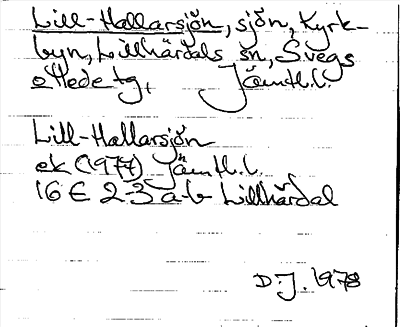 Lill-Hallarsjön, sjön, Kyrk-
byn, Lillhärdals sn, Svegs
tg, Jämtl.l.
Lill-Hallarsjön
ek (1977) Jämtl.l.
16 E 2-3 a-b Lillhärdal
D.J. 1978